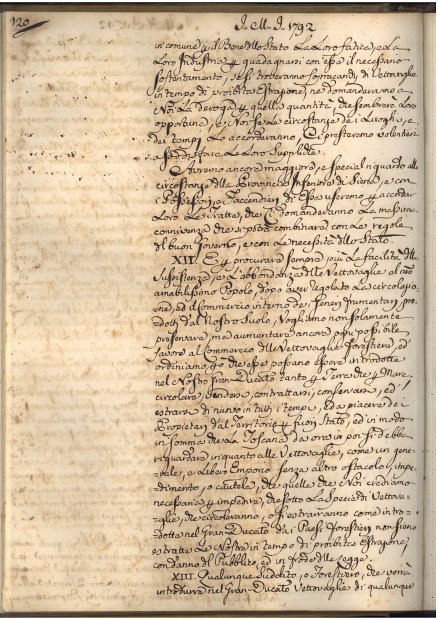 120
J. M. J. 1792
in comune, e il Bene dello Stato La Loro fatica, e La
Loro Industria, e guadagnarsi con essa il necessario
sostentamento, se si troveranno Vettovaglie
in tempo di proibita Estrazione, ne domanderanno a
Noi La deroga quella quantità, che sembrerà Loro
opportuna, e Noi se Le circostanze dei Luoghi, e
dei tempi Lo accorderanno, Ci presteremo volentieri
a soddisfare Le Loro suppliche.
Avremo ancora maggiore, e special riguardo alle
circostanze della Provincia Inferiore di Siena, e con
i Possessori, e Faccendieri di Essa useremo accordar
Loro Le tratte, che Ci domanderanno La massima
connivenza che potrà combinarsi con Le regole
del buon Governo, e con Le necessità dello Stato.
XII. E procurare sempre più La facilità della
sussistenza, e L'abbondanza delle Vettovaglie al nro
amabilissimo Popolo, dopo aver regolato La circolazio
ne, ed il Commercio interno dei Generi frumentari, pro
dotti dal Nostro Suolo, Vogliamo non solamente
preservare, ma aumentare ancora ogni possibile
favore al Commercio delle Vettovaglie forestiere, ed
ordiniamo, che esse possano essere introdotte
nel Nostro Gran-Ducato tanto Terra che Mare
circolare, vendere, contrattarsi, conservarsi, ed
estrarsi di nuovo in tutti i tempi, ed a piacere dei
Proprietari dal Territorio fuori Stato, ed in modo
in somma che La Toscana da ora in poi si debba
riguardare in quanto alle Vettovaglie, come un gene-
rale, e Libero Emporio senza altro ostacolo, impe
dimento, o cautela, che quelle che Noi crediamo
necessarie impedire, che sotto La specie di Vettova-
glie, che circoleranno, o si estrarranno come intro-
dotte nel Gran-Ducato dai Paesi forestieri non siano
estratte Le Nostre in tempo di proibita Estrazione,
con danno del Pubblico, ed in frode della Legge.
XIII. Qualunque Suddito, o Forestiero, che vorrà
introdurre nel Gran-Ducato Vettovaglie di qualunque